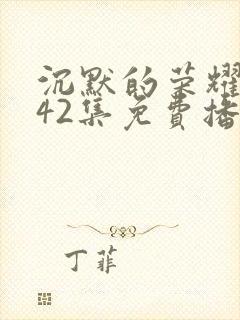 沉默的荣耀
42集免費播
丁菲